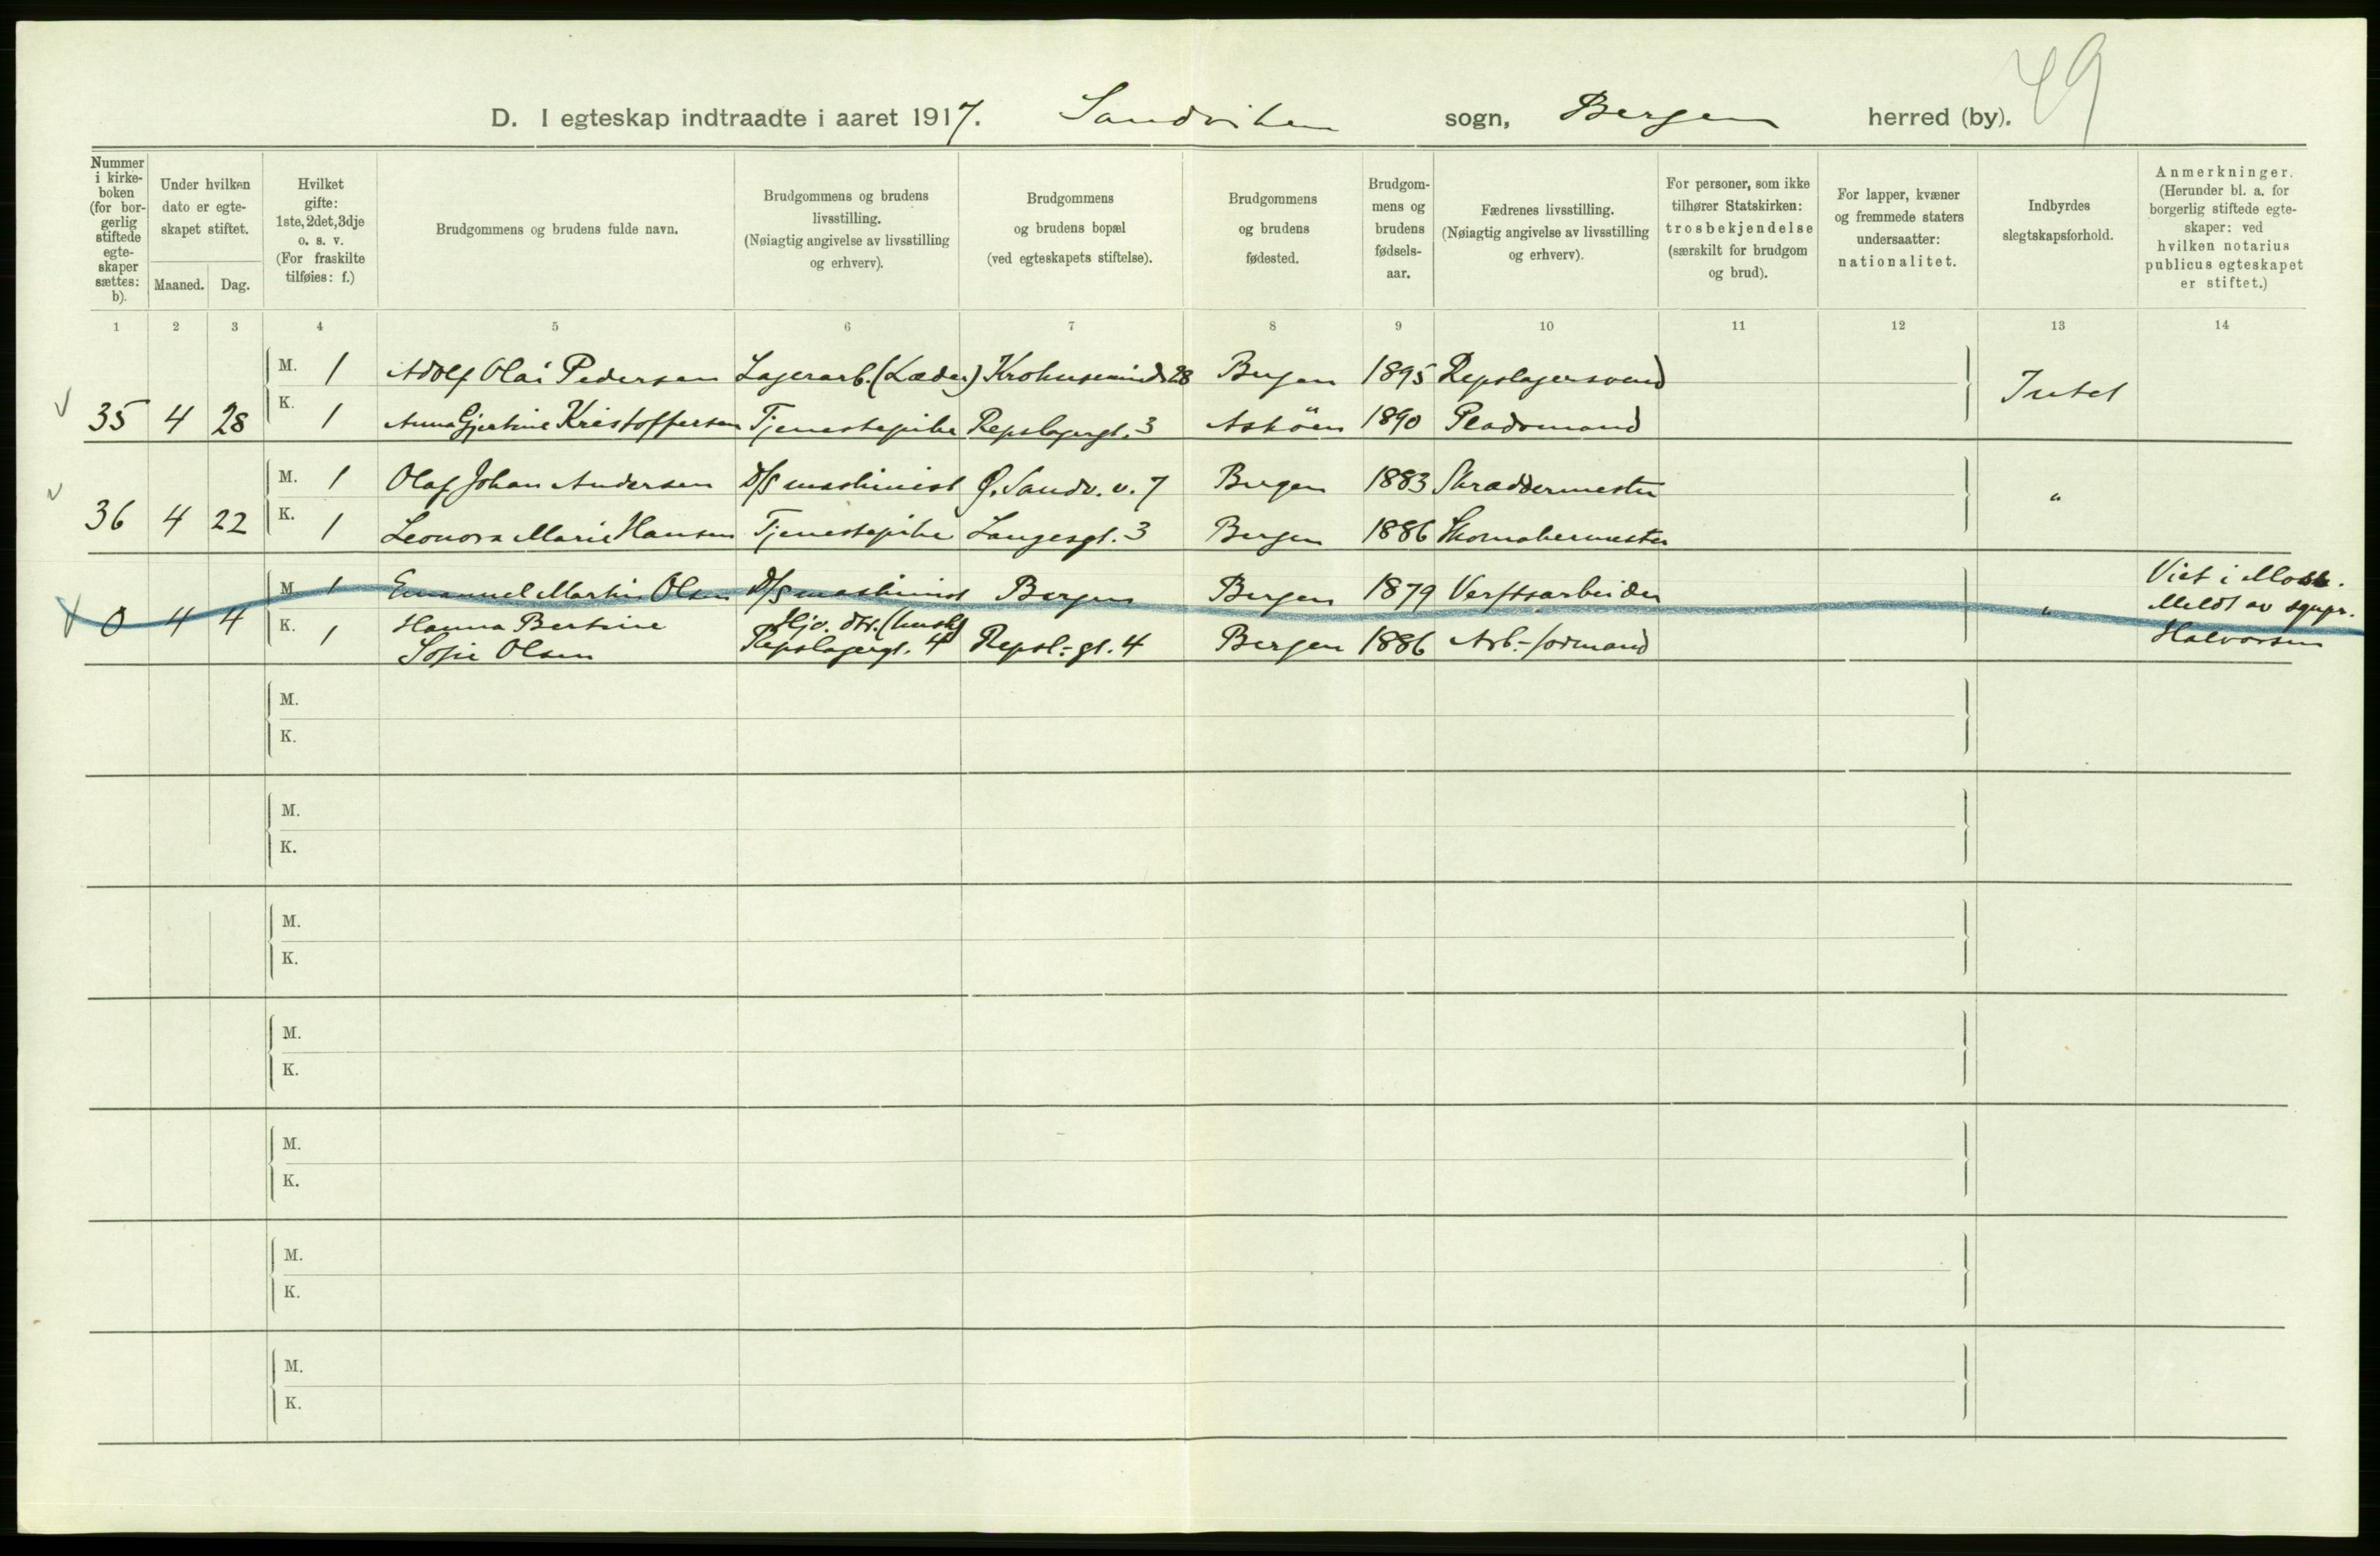 49
D. I egteskap indtraadte i aaret 1917. Sandviken sogn, Bergen herred (by).
Nummer i kirke-boken (for bor-gerlig stiftede egte-skaper sættes: b).
Under hvilken dato er egte-skapet stiftet.
Maaned. Dag.
Hvilket gifte: 1ste, 2det, 3dje o. s. v. (For fraskilte tilføies: f.)
Brudgommens og brudens fulde navn.
Brudgommens og brudens livsstilling. (Nøiagtig angivelse av livsstilling og erhverv).
Brudgommens og brudens bopæl (ved egteskapets stiftelse).
Brudgommens og brudens fødested.
Brudgom-mens og brudens fødsels-aar.
Fædrenes livsstilling. (Nøiagtig angivelse av livsstilling og erhverv).
For personer, som ikke tilhører Statskirken: trosbekjendelse (særskilt for brudgom og brud).
For lapper, kvæner og fremmede staters undersaatter: nationalitet.
Indbyrdes slegtskapsforhold.
Anmerkninger. (Herunder bl. a. for borgerlig stiftede egte-skaper: ved hvilken notarius publicus egteskapet er stiftet.)
1 2 3 4 5 6 7 8 9 10 11 12 13 14
M. 1 Adolf Olai Pedersen Lagerarb. (Læder) Krohusmind 28 Bergen 1895 Repslagersvend Intet
35 4 28 K. 1 Anna Gjertine Kristoffersen Tjenestepike Repslagergt. 3 Askøen 1890 Pladsmand
M. 1 Olaf Johan Andersen D/S maskinist Ø. Sandv. v. 7 Bergen 1883 Skræddermester "
36 4 22 K. 1 Leonora Marie Hansen Tjenestepike Langesgt. 3 Bergen 1886 Skomakermester
0 4 4 M. 1 Emanuel Martin Olsen D/S maskinist Bergen Bergen 1879 Verftsarbeider " Viet i Moss.
Meldt av sgnpr.
K. 1 Hanna Bertine Hjv. dtr. (hush)
Sofie Olsen Repslagergt. 4 Repsl.-gt. 4 Bergen 1886 Arb.-formand Halvorsen
M.
K.
M.
K.
M.
K.
M.
K.
M.
K.
M.
K.
M.
K.